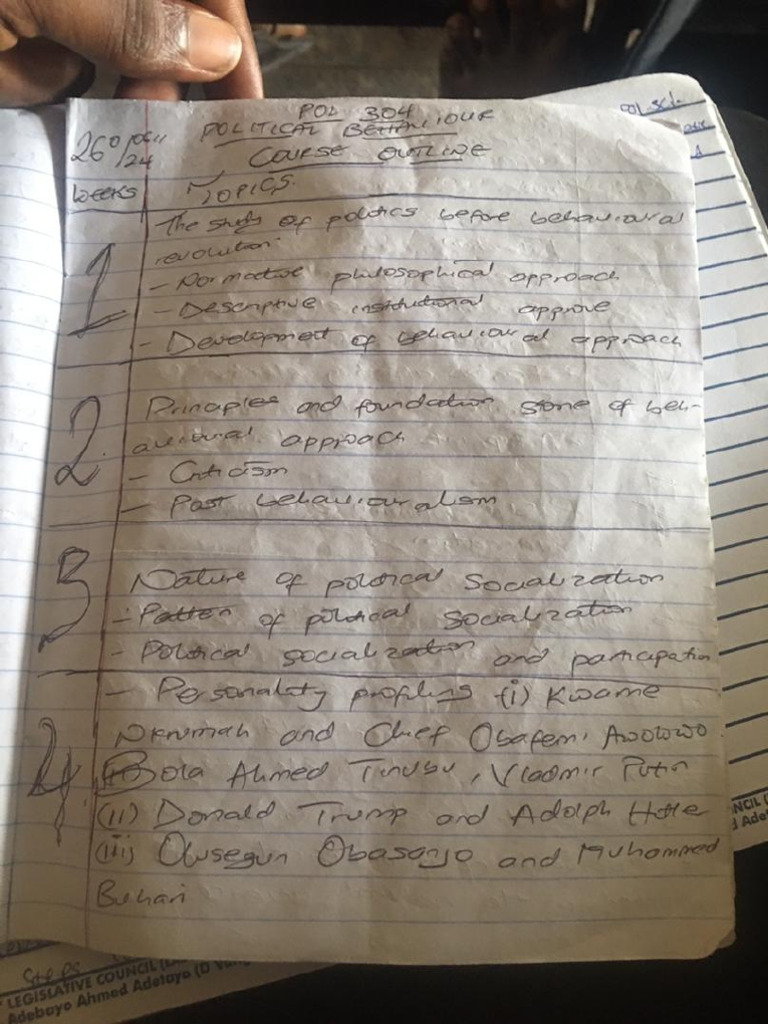 POL 304
POLITICAL BEHAVIOUR
COURSE OUTLINE
Weeks TOPICS.
1 The study of politics before behavioural
revolution.
- Normative philosophical approach
- Descriptive institutional approve
- Development of behavioural approach
2. Principles and foundation stone of beh-
avioural approach
- Criticism
- Post behaviouralism
3 Nature of political Socialization
- Patten of political socialization
- Political socialization and participation
4 - Personality profiling (i) Kwame
Nkrumah and Chief Obafemi Awolowo
Bola Ahmed Tinubu, Vladmir Putin
(ii) Donald Trump and Adolph Hitle
(iii) Olusegun Obasanjo and Muhammed
Buhari
Steps
LEGISLATIVE COUNCIL
Adebayo Ahmed Adetayo (D